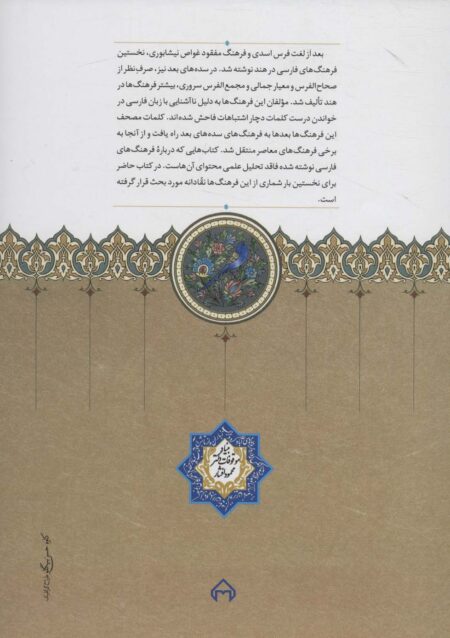 بعد از لغت فرس اسدی و فرهنگ مفقود غواص نیشابوری، نخستین
فرهنگ‌های فارسی در هند نوشته شد. در سده‌های بعد نیز، صرف‌نظر از
صحاح‌الفرس و معیار جمالی و مجمع‌الفرس سروری، بیشتر فرهنگ‌ها در
هند تألیف شد. مؤلفان این فرهنگ‌ها به دلیل ناآشنایی با زبان فارسی در
خواندن درست کلمات دچار اشتباهات فاحش شده‌اند. کلمات مصحف
این فرهنگ‌ها بعدها به فرهنگ‌های سده‌های بعد راه یافت و از آنجا به
برخی فرهنگ‌های معاصر منتقل شد. کتاب‌هایی که دربارهٔ فرهنگ‌های
فارسی نوشته شده فاقد تحلیل علمی محتوای آن‌هاست. در کتاب حاضر
برای نخستین بار شماری از این فرهنگ‌ها نقّادانه مورد بحث قرار گرفته
است.
بنیاد
موقوفات دکتر
محمود افشار